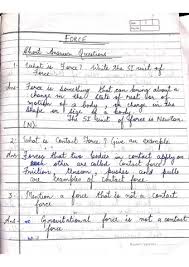 FORCE
Short Answer Questions
1. What is Force? Write the SI unit of
Force.
Ans- Force is something that can bring about a
change in the state of rest or of
motion of a body, or change in the
shape or size of a body.
The SI unit of Force is Newton.
(N).
2. What is Contact Force? Give an example
Ans- Forces that two bodies in contact apply on
each other are called Contact force
Friction, tension, pushes and pulls
are examples of contact force
3. Mention a force that is not a contact
force.
Ans- Gravitational force is not a contact
force